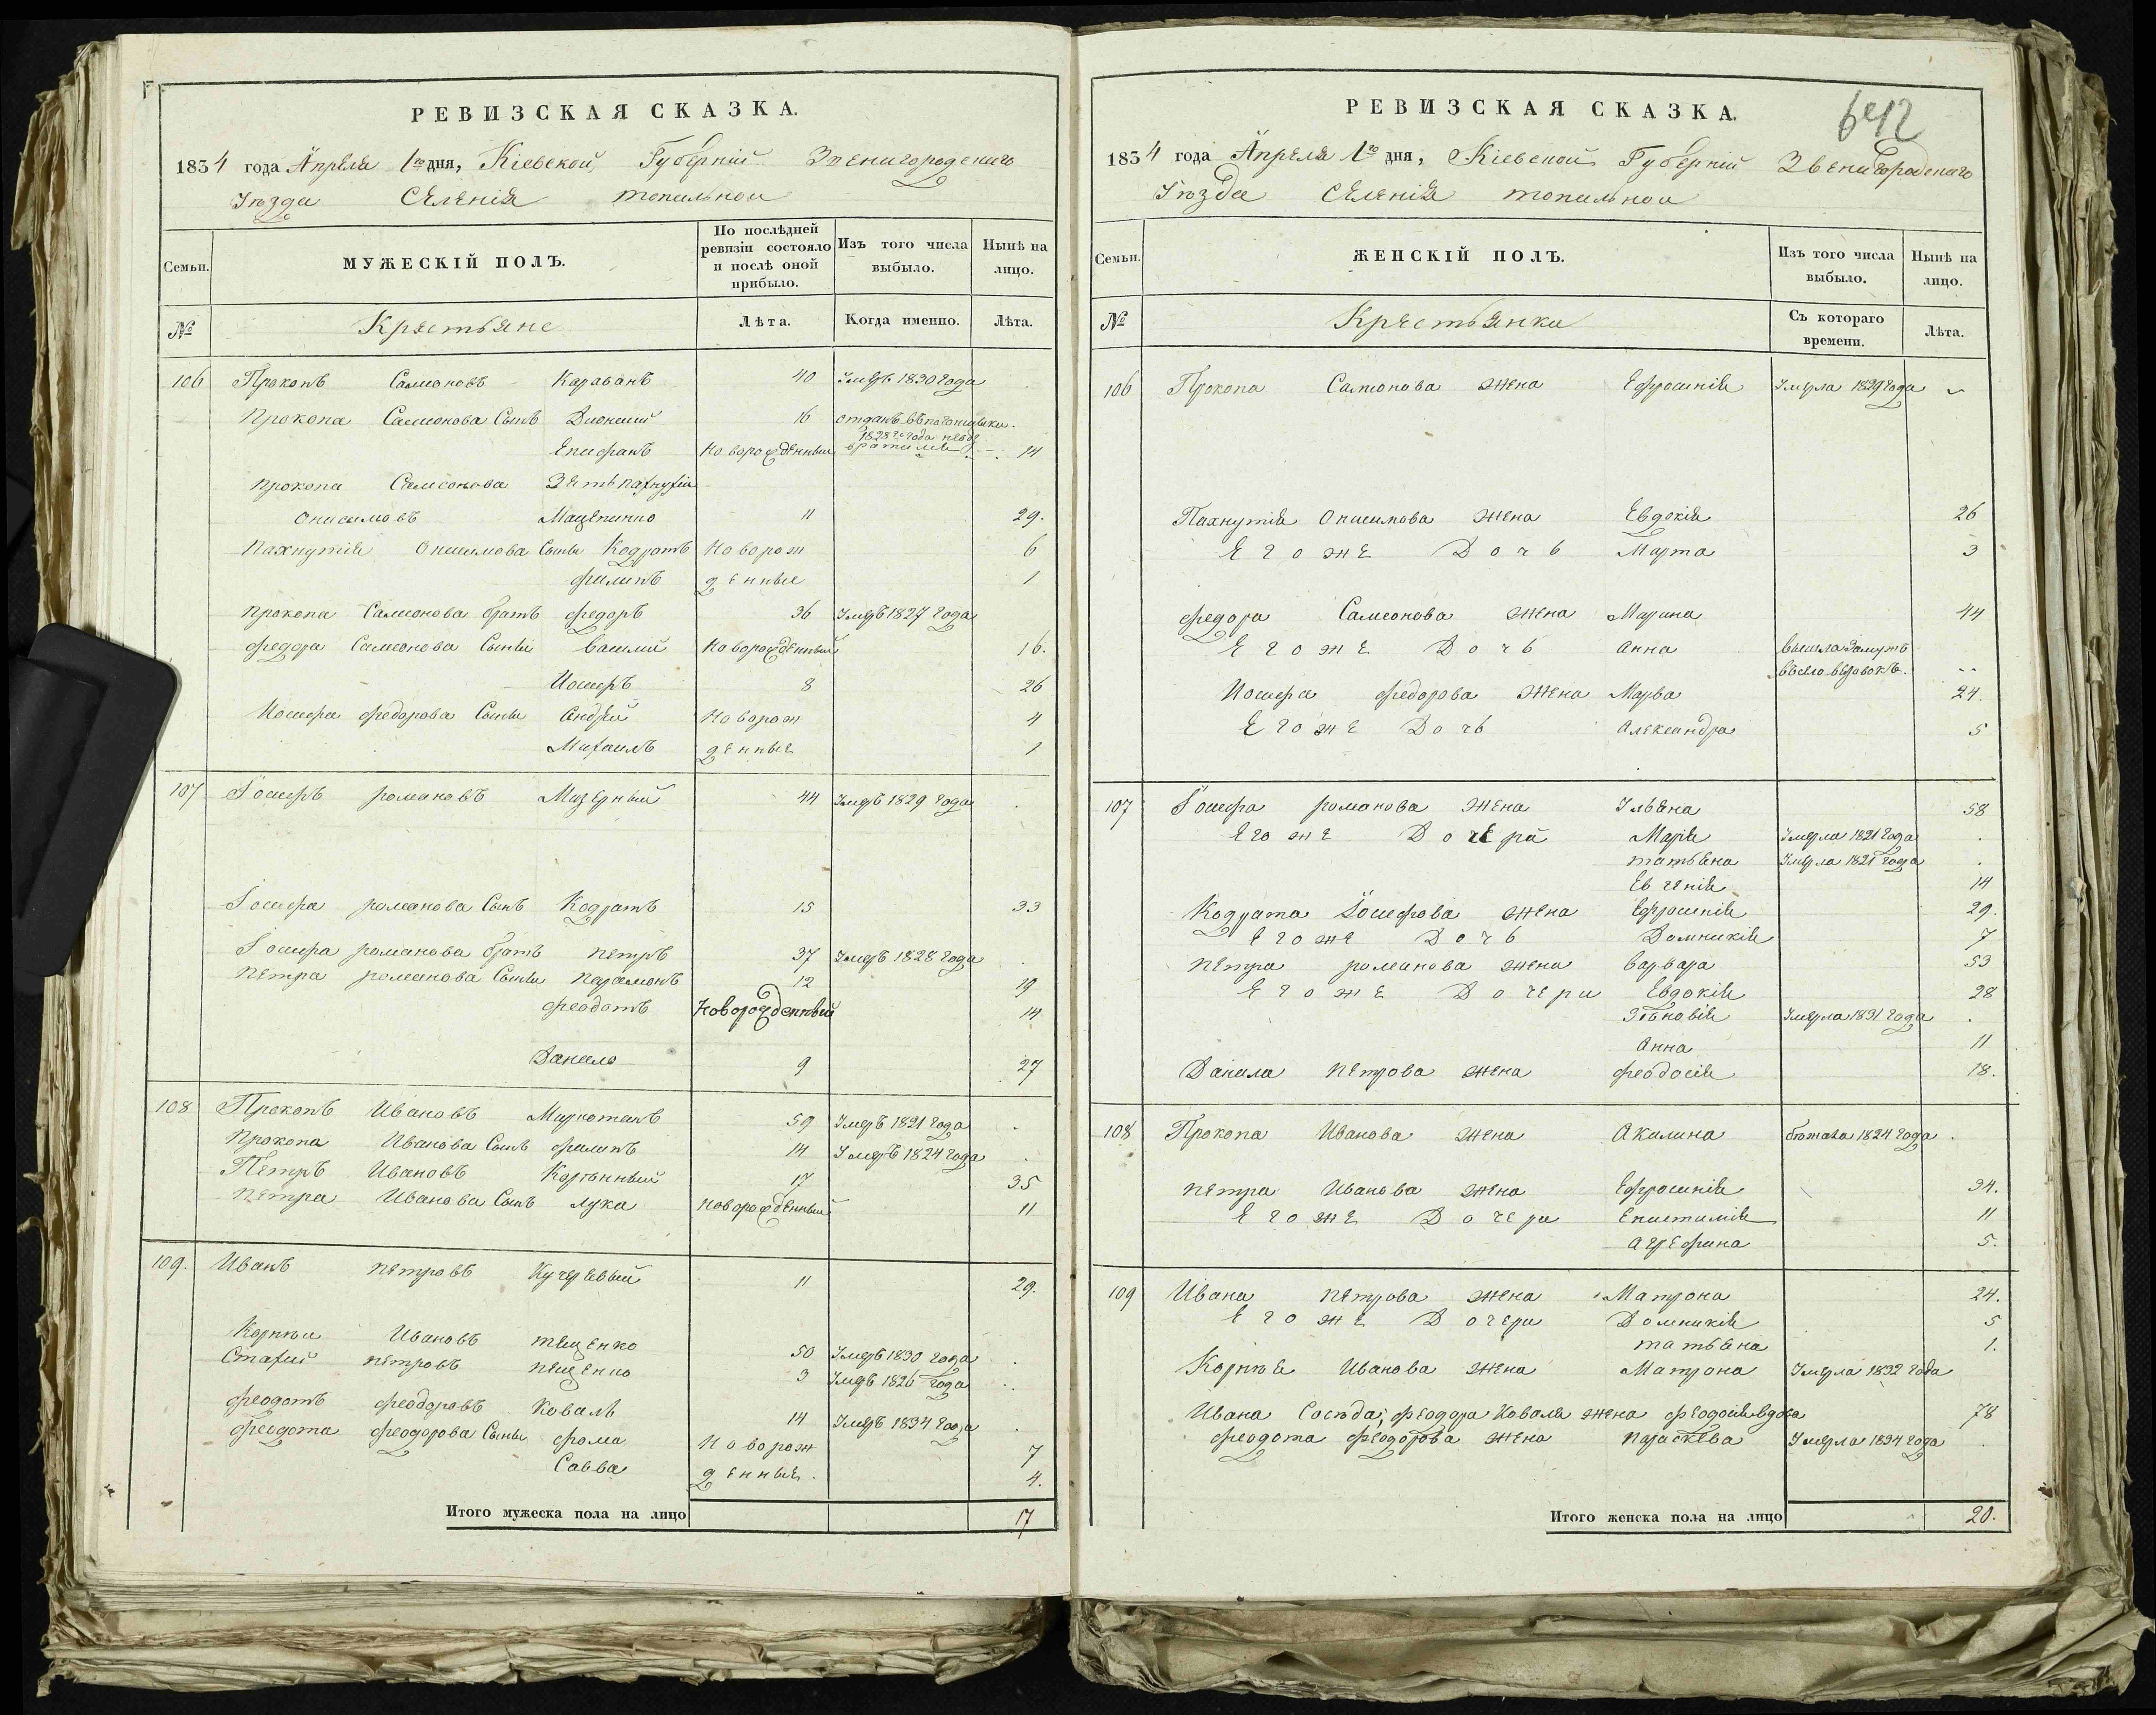 РЕВИЗСКАЯ СКАЗКА.
1834 года Апреля 1го дня, Кіевской Губерніи Звенигородскаго
Уѣзда Селенія топильной
Семьи.
МУЖЕСКІЙ ПОЛЪ.
По послѣдней ревизіи состояло и послѣ оной прибыло.
Изъ того числа выбыло.
Нынѣ на лицо.
№
Крестьяне
Лѣта.
Когда именно.
Лѣта.
106 Прокопъ Самсоновъ Караванъ 40 Умеръ 1830 года
Прокопа Самсонова Сынъ Дионисий 16 отданъ въ погонщики
1828го года невоз
Епифанъ Новорожденный вратился 14
Прокопа Самсонова Зять пахнутій
Онисимовъ Мацепинко 11 29.
Пахнутія Онисимова Сыны Кодратъ Новорож 6
филипъ денные 1
Прокопа Самсонова братъ федоръ 36 Умеръ 1827 года
федора Самсонова Сыны василий Новорожденный 16.
Иосифъ 8 26
Иосифа федорова Сыны андрей Новорож 4
Михаилъ денные 1
107 Іосифъ романовъ Мизерный 44 Умеръ 1829 года
Іосифа романова Сынъ Кодратъ 15 33
Іосифа романова братъ петръ 37 Умеръ 1828 года
петра романова Сыны парамонъ 12 19
феодотъ Новорожденный 14
Данило 9 27
108 Прокопъ Ивановъ Маркотанъ 59 Умеръ 1821 года
Прокопа Иванова Сынъ филипъ 14 Умеръ 1824 года
Петръ Ивановъ 17 35
петра Иванова Сынъ лука новорожденный 11
109. Иванъ петровъ Кучерявый 11 29.
Корнѣи Ивановъ тищенко 50 Умеръ 1830 года
Стахий петровъ пищенко 3 Умеръ 1826 года
феодотъ феодоровъ Коваль 14 Умеръ 1834 года
феодота феодорова Сыны фома Новорож 7
Савва денные. 4.
Итого мужеска пола на лицо 17
РЕВИЗСКАЯ СКАЗКА.
642
1834 года Апреля 1го дня, Кіевской Губерніи Звенигородскаго
Уѣзда Селенія топильной
Семьи.
ЖЕНСКІЙ ПОЛЪ.
Изъ того числа выбыло.
Нынѣ на лицо.
№
Крестьянки
Съ котораго времени.
Лѣта.
106 Прокопа Самсонова жена Ефросинія Умерла 1829 года
Пахнутія Онисимова жена Евдокія 26
Егоже Дочь Марта 3
федора Самсонова жена Марина 44
Егоже Дочь анна вышла замужъ
въ село
Иосифа федорова жена Марва 24.
Егоже Дочь александра 5
107 Іосифа романова жена Ульяна 58
Егоже Дочери Марія Умерла 1821 года
татьяна Умерла 1821 года
Евгенія 14
Кодрата Іосифова жена Ефросинія 29.
Егоже Дочь Домникія 7
петра романова жена варвара 53
Егоже Дочери Евдокія 28
Зѣновія Умерла 1831 года
анна 11
Данила петрова жена феодосія 18.
108 Прокопа Иванова жена Акилина бежала 1824 года
петра Иванова жена Ефросинія 34.
Егоже Дочери Епистимія 11
агрефина 5.
109 Ивана петрова жена Матрона 24.
Егоже Дочери Домникія 5
татьяна 1.
Корнѣя Иванова жена Матрона Умерла 1832 года
Ивана Сосѣда, феодора Коваля жена феодосія вдова 78
феодота феодорова жена параскева Умерла 1834 года
Итого женска пола на лицо 20.